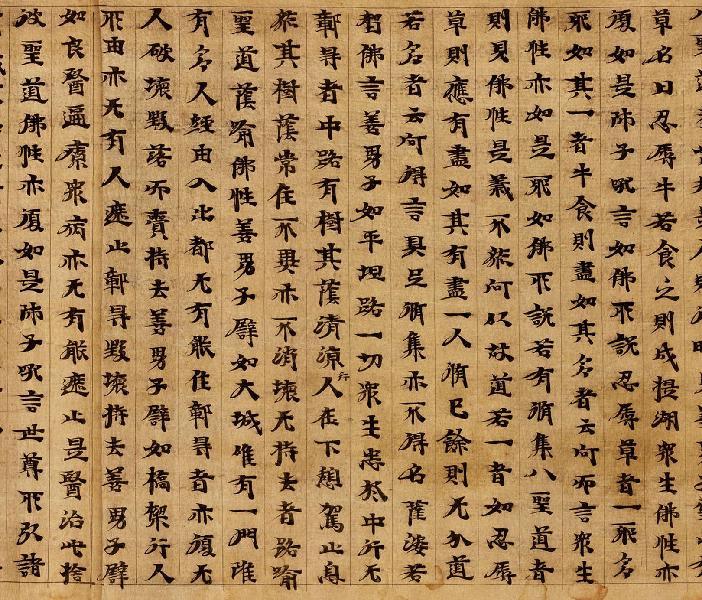 草名曰忍辱牛若食之則成提湖眾生佛性亦
復如是師子吼言如佛所說忍辱草者一耶多
耶如其一者牛食則盡如其多者云何而言眾生
佛性亦如是耶如佛所說若有脩集八聖道者
則見佛性是義不然何以故道若一者如忍辱
草則應有盡如其有盡一人脩已餘則无分道
若多者云何得言具足脩集亦不得名薩婆若
智佛言善男子如平坦路一切眾生悉於中行无
鄣㝵者中路有樹其蔭清涼行人在下憩駕止息
然其樹蔭常住不異亦不消壞无持去者路喻
聖道蔭喻佛性善男子譬如大城唯有一門雖
有多人經由入出都无有能住鄣㝵者亦復无
人破壞毀落而賷持去善男子譬如橋樑行人
所由亦无有人遮止鄣㝵毀壞持去善男子譬
如良醫遍療眾病亦无有能遮止是醫治此捨
彼聖道佛性亦復如是師子吼言世尊所引諸